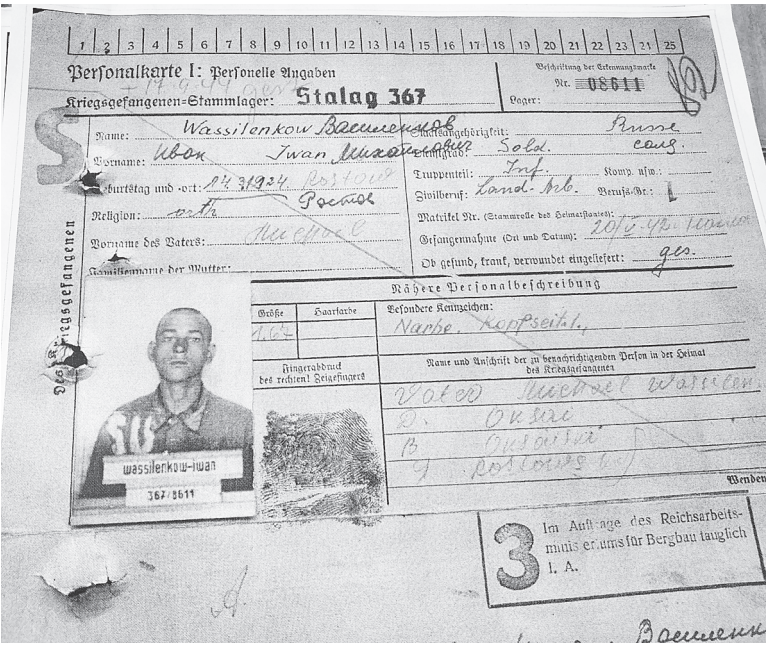 1 2 3 4 5 6 7 8 9 10 11 12 13 14 15 16 17 18 19 20 21 22 23 24 25
Personalkarte I: Personelle Angaben
Kriegsgefangenen=Stammlager: Stalag 367
Beschriftung der Erkennungsmarke
Nr. 08611
Lager:
S
Des Kriegsgefangenen
Name: Wassilenkow Василенков
Vorname: Иван Iwan Михайлович
Geburtstag und -ort: 14.3.1924. Rostow
Ростов
Religion: orth
Vorname des Vaters: Michael
Familienname der Mutter:
Staatsangehörigkeit: Russe
Dienstgrad: Sold.
Truppenteil: Inf. Komp. usw.:
Zivilberuf: Land-Arb. Berufs-Gr.: 1
Matrikel Nr. (Stammrolle des Heimatstaates):
Gefangennahme (Ort und Datum): 20/V.42.
Ob gesund, krank, verwundet eingeliefert: ges.
Nähere Personalbeschreibung
Größe Haarfarbe Besondere Kennzeichen:
1.67 Narbe. Kopfseite
Fingerabdruck
des rechten! Zeigefingers
Name und Anschrift der zu benachrichtigenden Person in der Heimat
des Kriegsgefangenen
Vater Michael Wassilen
D. Oksai
B
G Rostows
Wenden
SU
wassilenkow-iwan
367/8611
3 Im Auftrage des Reichsarbeits-
ministeriums für Bergbau tauglich
I. A.
Василенк